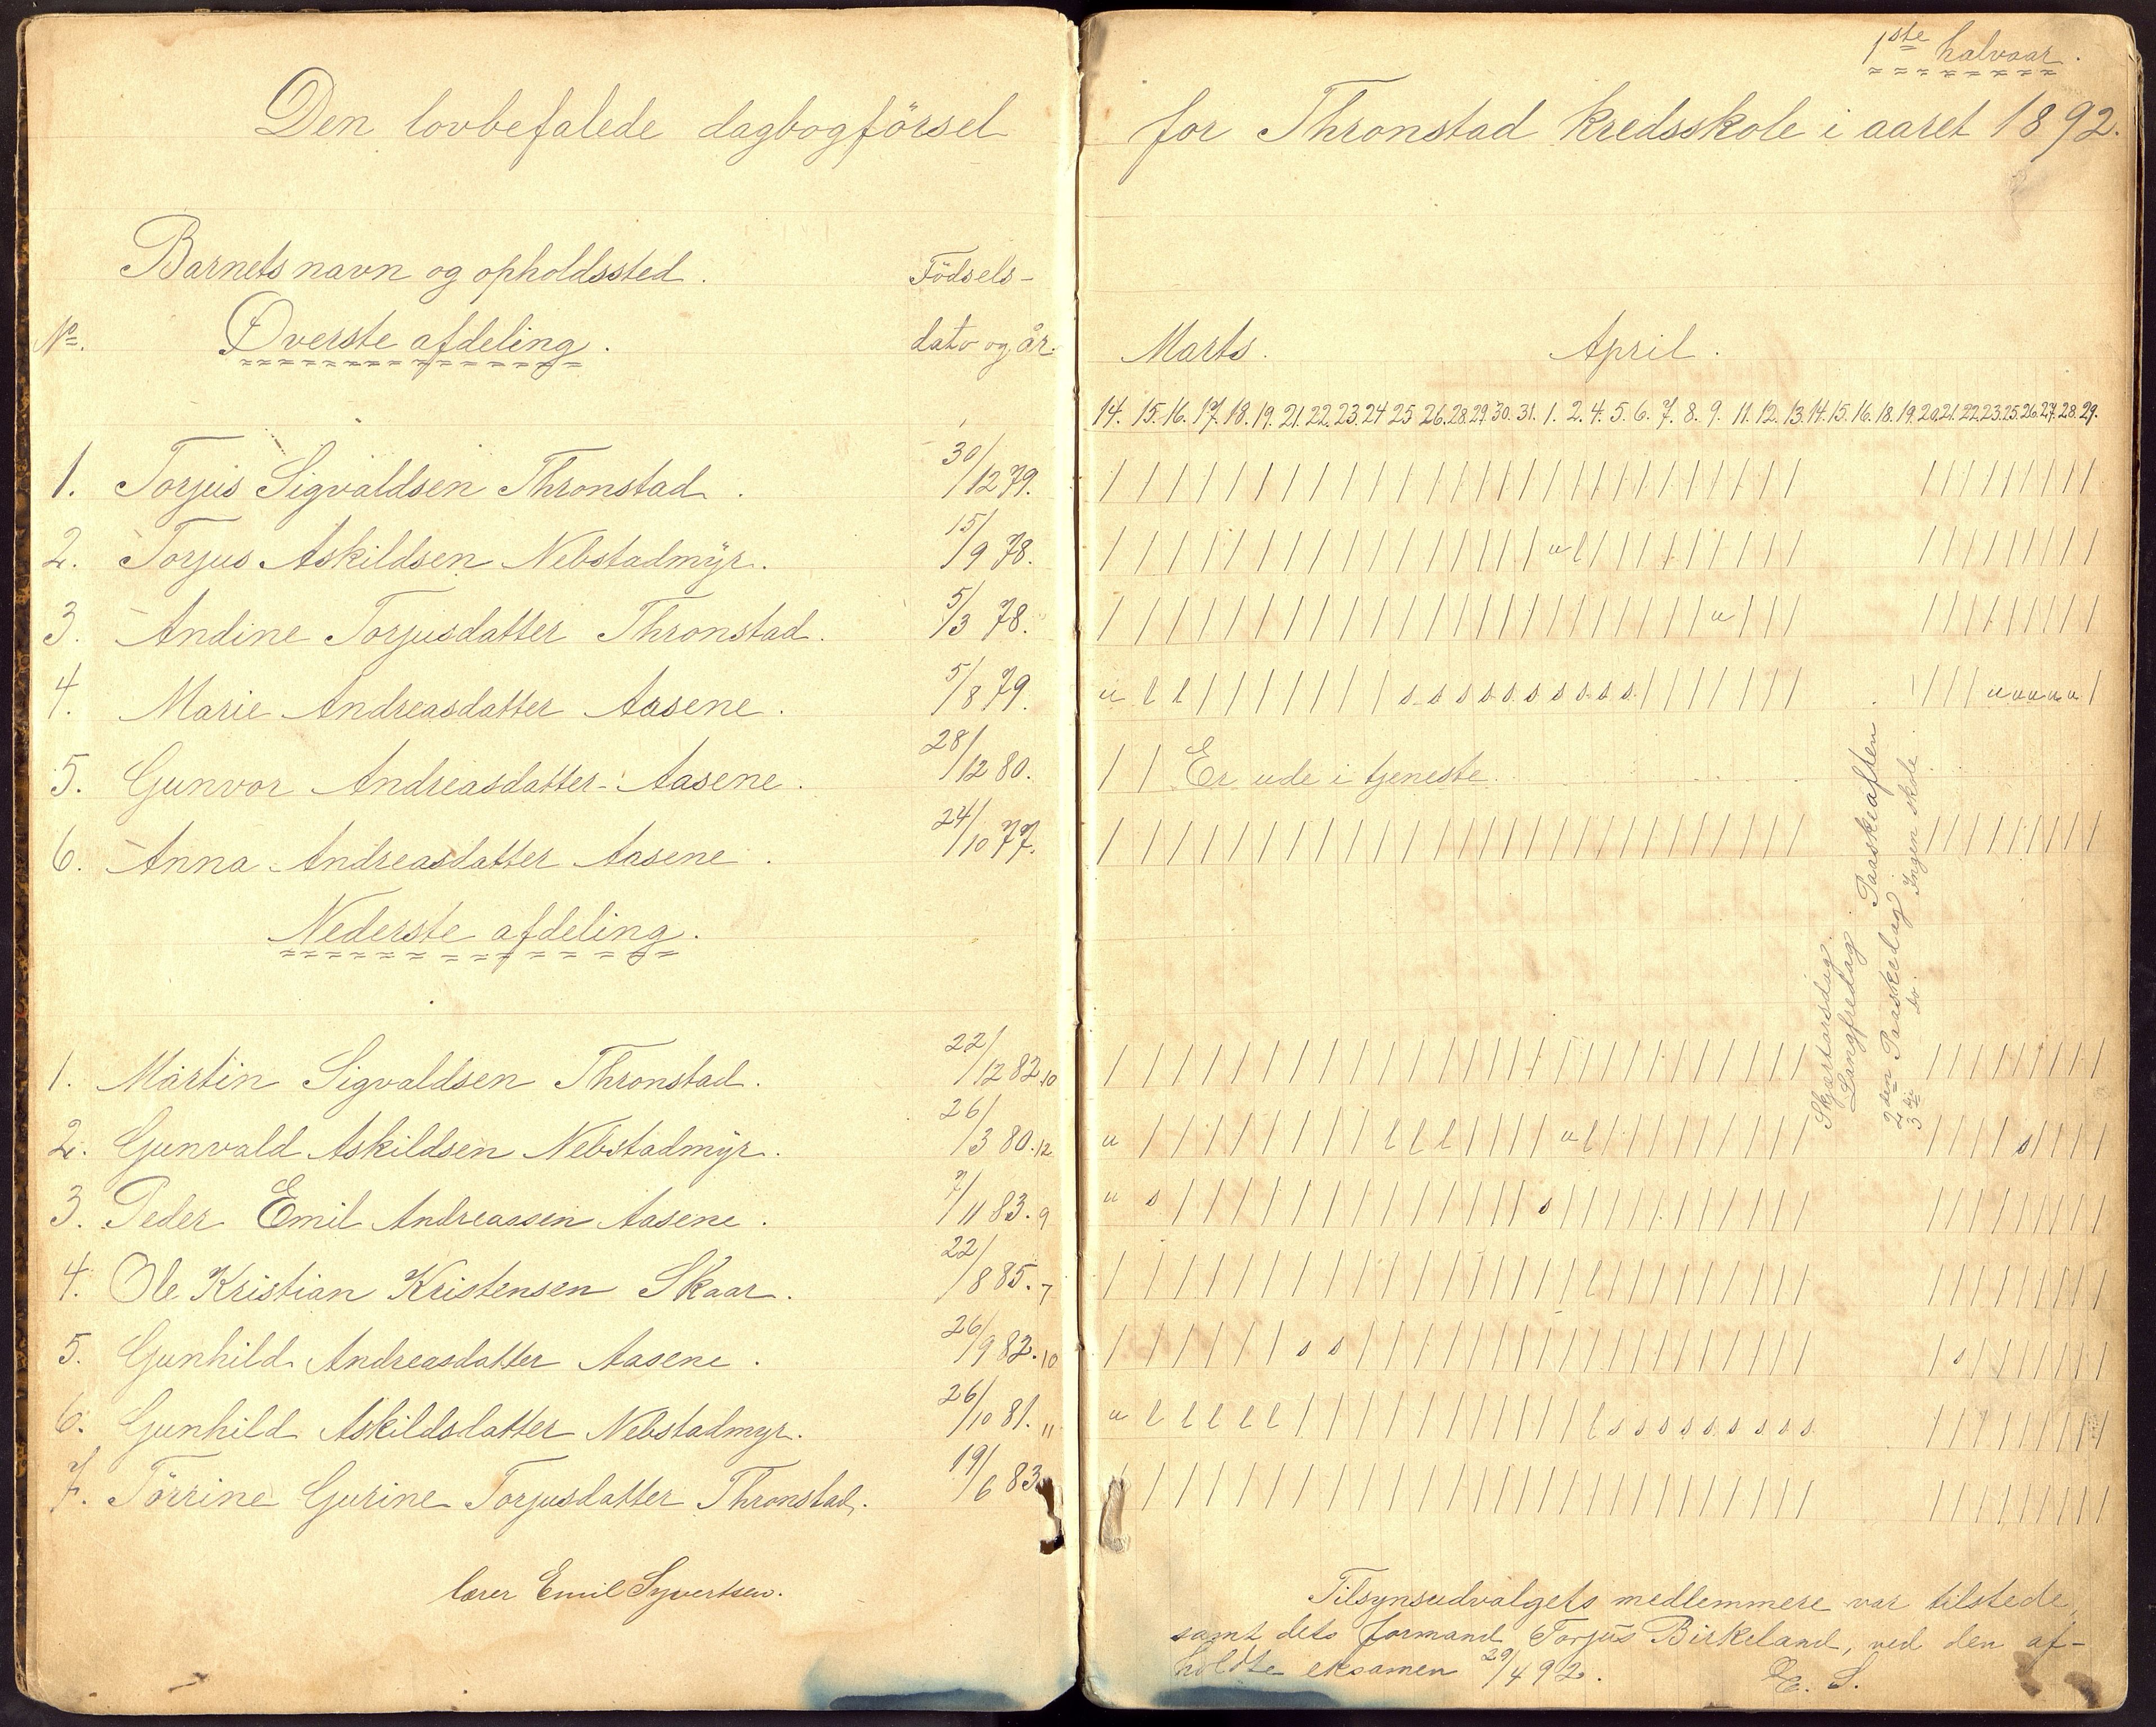 1ste halvaar.
Den lovbefalede dagbogförsel for Thronstad kredsskole i aaret 1892.
Barnets navn og opholdssted. Födsels-
No. Øverste afdeling. dato og år. Marts. April.
14. 15. 16. 17. 18. 19. 21. 22. 23. 24 25 26. 28. 29. 30. 31. 1. 2. 4. 5. 6. 7. 8. 9. 11. 12. 13. 14. 15. 16. 18. 19. 20. 21. 22. 23. 25. 26. 27. 28. 29.
1. Torjus Sigvaldsen Thronstad. 30/12 79. / / / / / / / / / / / / / / / / / / / / / / / / / / / / / / / / / / / /
2. Torjus Askildsen Nebstadmÿr. 15/9 78. / / / / / / / / / / / / / / / / u l / / / / / / / / / / / / / / / / / /
3. Andine Torjusdatter Thronstad. 5/3 78. / / / / / / / / / / / / / / / / / / / / / / / u / / / / / / / / / / / /
4. Marie Andreasdatter Aasene. 5/8 79. u l l / / / / / / / s s s s s s s s s s / / / / / / / / / / u u u u u /
5. Gunvor Andreasdatter Aasene. 28/12 80. / / Er ude i tjeneste
6. Anna Andreasdatter Aasene. 24/10 77. / / / / / / / / / / / / / / / / / / / / / / / / / / / / / / / / / / / /
Skjærtorsdag.
Langfredag
Paaskeaften
2den Paaskedag
3die do. Ingen skole.
Nederste afdeling.
1. Martin Sigvaldsen Thronstad. 22/12 82. 10 / / / / / / / / / / / / / / / / / / / / / / / / / / / / / / / / / / / /
2. Gunvald Askildsen Nebstadmÿr. 26/3 80. 12 u / / / / / / / / l l l / / / / u l / / / / / / / / / / / / / s / / / /
3. Peder Emil Andreassen Aasene. 7/11 83. 9 u s / / / / / / / / / / / / / s / / / / / / / / / / / / / / / / / / / /
4. Ole Kristian Kristensen Skaar. 22/8 85. 7 / / / / / / / / / / / / / / / / / l / / / / / / / / / / / / / / / / / /
5. Gunhild Andreasdatter Aasene. 26/9 82. 10 / / / / / / s s / / / / / / / / / / / / / / / / / / / / s / / / / / / /
6. Gunhild Askildsdatter Nebstadmyr. 26/10 81. 11 u l l l l l / / / / / / / / / / / l s s s s s s s s s / / / / / / / / /
7. Törrine Gurine Torjusdatter Thronstad. 19/6 83 / / / / / / / / / / / / / / / / / / / / / / / / / / / / / / / / / / / /
lærer Emil Syvertsen.
Tilsynsudvalgets medlemmere var tilstede,
samt dets formand Torjus Birkeland, ved den af-
holdte eksamen 29/4 92. E. S.